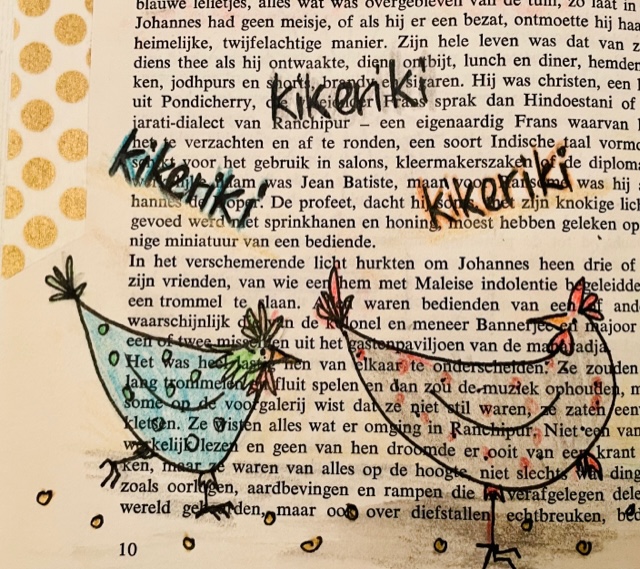 blauwe lelietjes, alles wat was overgebleven van de tuin, zo laat in
Johannes had geen meisje, of als hij er een bezat, ontmoette hij haa
heimelijke, twijfelachtige manier. Zijn hele leven was dat van z
diens thee als hij ontwaakte, diens ontbijt, lunch en diner, hemden
ken, jodhpurs en shorts, brandy en sigaren. Hij was christen, een
kikeriki
uit Pondicherry, die Frans sprak dan Hindoestani of
jarati-dialect van Ranchipur – een eigenaardig Frans waarvan
het te verzachten en af te ronden, een soort Indische taal vorm
kikeriki
kikeriki
voor het gebruik in salons, kleermakerszaken of de diploma
naam was Jean Batiste, maar voor was hij
hannes de Doper. De profeet, dacht hij soms, met zijn knokige lic
gevoed werd met sprinkhanen en honing, moest hebben geleken op
nige miniatuur van een bediende.
In het verschemerende licht hurkten om Johannes heen drie of
zijn vrienden, van wie een hem met Maleise indolentie begeleidde
een trommel te slaan. Allen waren bedienden van een of and
waarschijnlijk van de kolonel en meneer Bannerjee en majoor
een of twee misschien uit het gastenpaviljoen van de maharadja.
Het was heel lastig hen van elkaar te onderscheiden. Ze zouden
lang trommelen en fluit spelen en dan zou de muziek ophouden, m
some op de voorgalerij wist dat ze niet stil waren, ze zaten een
kletsen. Ze wisten alles wat er omging in Ranchipur. Niet een van
werkelijk lezen en geen van hen droomde er ooit van een krant
ken, maar ze waren van alles op de hoogte, niet slechts van ding
zoals oorlogen, aardbevingen en rampen die in verafgelegen dele
wereld gebeurden, maar ook over diefstallen, echtbreuken, bed
10